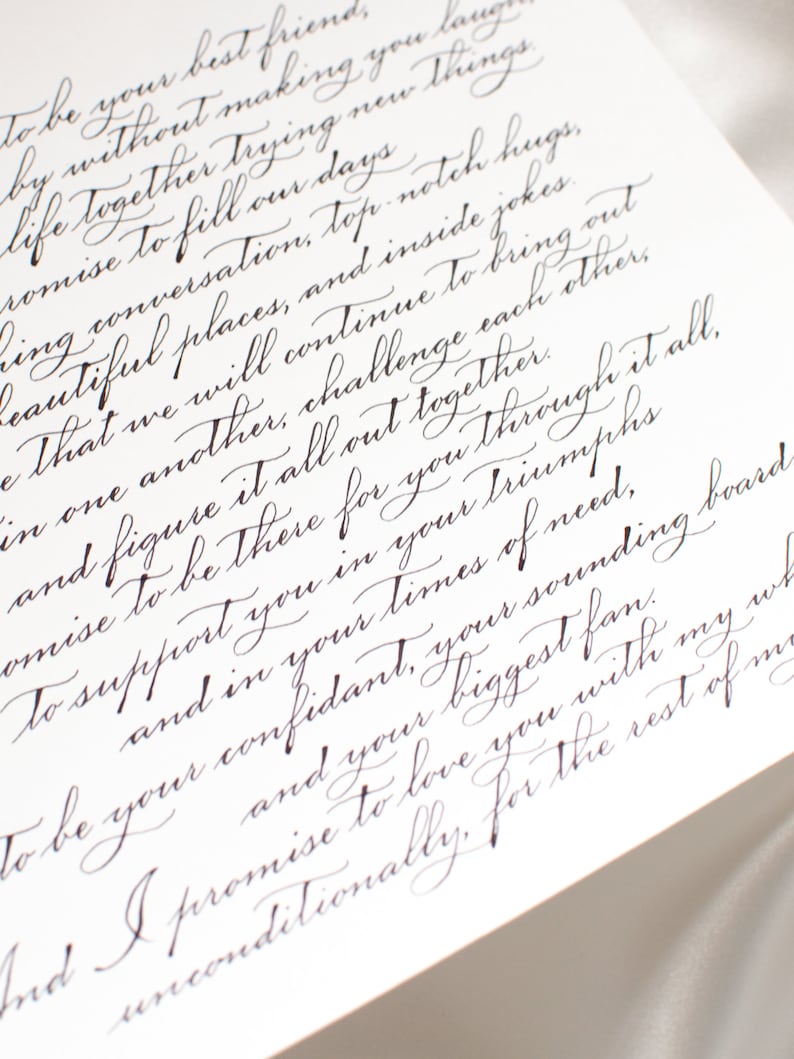 to be your best friend,
by without making you laugh,
life together trying new things.
romise to fill our days
hing conversation, top-notch hugs,
beautiful places, and inside jokes.
e that we will continue to bring out
in one another, challenge each other,
and figure it all out together.
omise to be there for you through it all,
to support you in your triumphs
and in your times of need,
to be your confidant, your sounding board
and your biggest fan.
And I promise to love you with my wh
unconditionally, for the rest of my